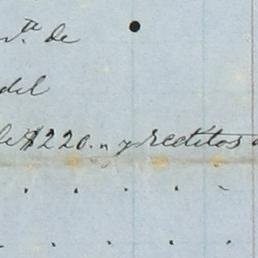 de
del
de $220.„ y reditos